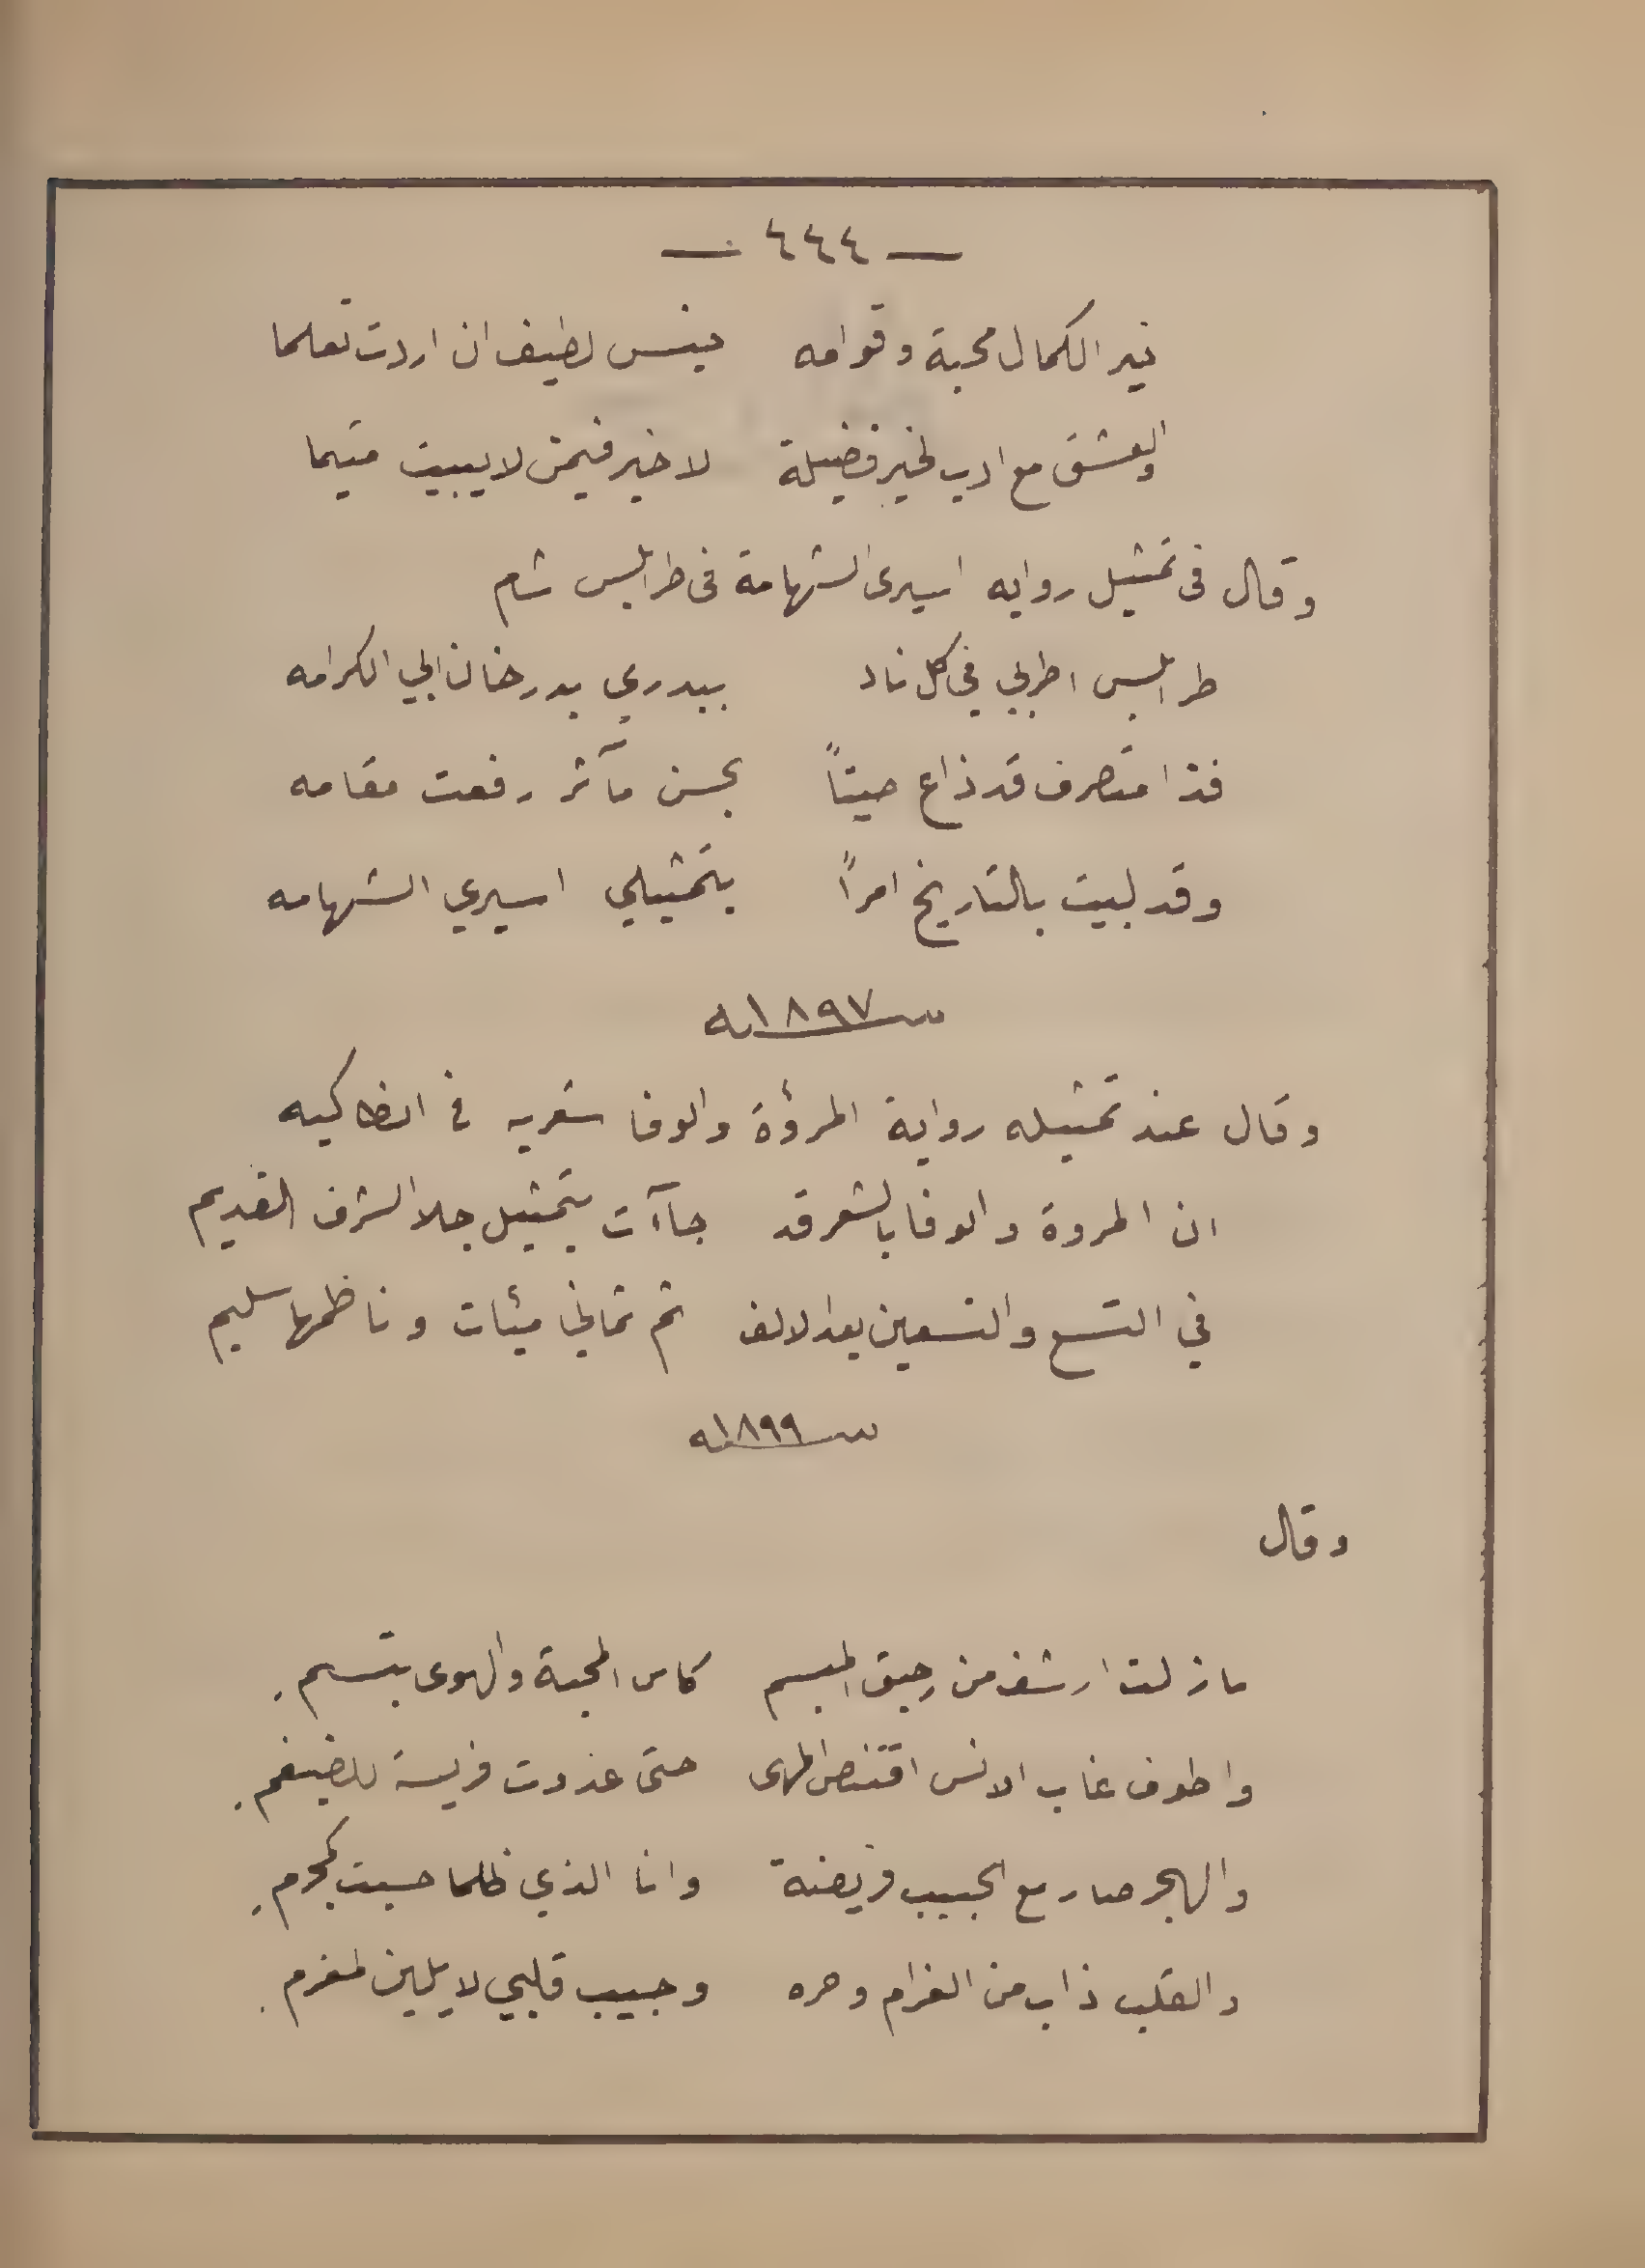 — ٤٤٤ —
نير الكمال محبة وقوامه جنس لطيف ان اردت تعلما
والعشق مع ادب لخير فضيلة لا خير فيمن لا يبيت متيما
وقال فى تمثيل روايه اسيرى الشهامة فى طرابلس شام
طرابلس اطربي في كل ناد ببدري بدرخان ابي الكرامه
فذا متصرف قد ذاع صيتاً بحسن مآثر رفعت مقامه
وقد لبيت بالتاريخ امراً بتمثيلي اسيري الشهامه
سنه ١٨٩٧
وقال عند تمثيله رواية المرؤة والوفا شعريه في انطاكيه
ان المروة والوفا بالشعر قد جاآت بتمثيل جلا الشرف القديم
في التسع والتسعين بعد الالف ثم ثماني مئات وناظمها سليم
سنه ١٨٩٩
وقال
ما زلت ارشف من رحيق المبسم كاس المحبة والهوى بتبسم.
واطوف غاب الانس اقتنص المهى حتى غدوت فريسة للضيغم.
والهجر صار مع الحبيب فريضة وانا الذي ظلما حسبت كمجرم.
والقلب ذاب من الغرام وحره وحبيب قلبي لا يلين لمغرم.